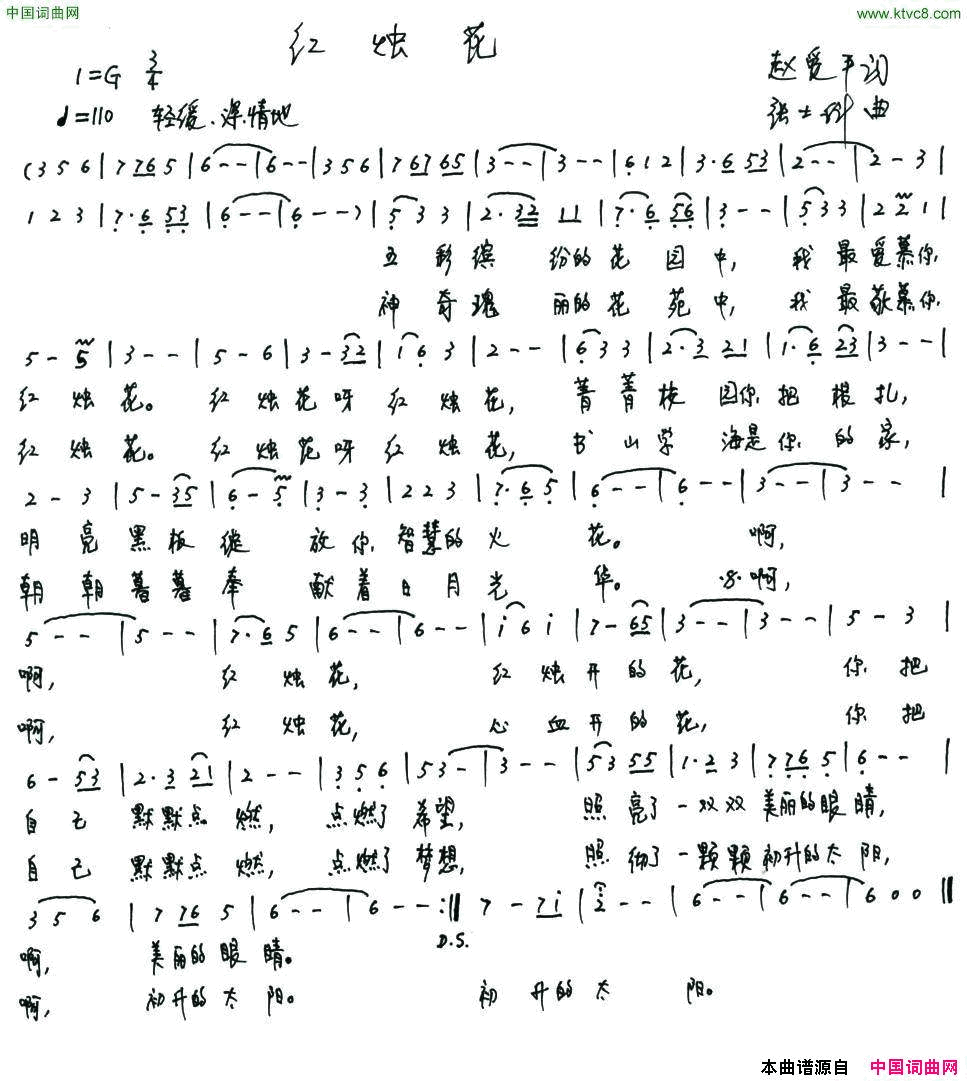 中国词曲网
www.ktvc8.com
红烛花
1=G 3/4
♩=110 轻缓、深情地
赵爱平词
张士
曲
(3 5 6|7 76 5|6 - -|6 - -|3 5 6|7 6765|3 - -|3 - -|6 1 2|3·6 53|2 - -|2 - 3|
1 2 3|7·6 53|6 - -|6 - -)|5 3 3|2·32 11|7·6 56|3 - -|5 3 3|2 2 1|
五彩缤纷的花园中,我最爱慕你
神奇瑰丽的花苑中,我最敬慕你
5 - 5|3 - -|5 - 6|3 - 32|1 6 3|2 - -|6 3 3|2·3 21|1·6 23|3 - -|
红烛花。红烛花呀红烛花,菁菁校园你把根扎,
红烛花。红烛花呀红烛花,书山学海是你的家,
2 - 3|5 - 35|6 - 5|3 - 3|2 2 3|7·6 5|6 - -|6 - -|3 - -|3 - -|
明亮黑板绽放你智慧的火花。啊,
朝朝暮暮奉献着日月光华。啊,
5 - -|5 - -|7·6 5|6 - -|6 - -|i 6 i|7 - 65|3 - -|3 - -|5 - 3|
啊,红烛花,红烛开的花,你把
啊,红烛花,心血开的花,你把
6 - 53|2·3 21|2 - -|3 5 6|53 -|3 - -|53 55|1·2 3|7 76 5|6 - -|
自己默默点燃,点燃了希望,照亮了一双双美丽的眼睛,
自己默默点燃,点燃了梦想,照彻了一颗颗初升的太阳,
3 5 6|7 76 5|6 - -|6 - -:‖7 - 7i|2 - -|6 - -|6 - -|6 0 0‖
D.S.
啊,美丽的眼睛。
啊,初升的太阳。初升的太阳。
本曲谱源自 中国词曲网